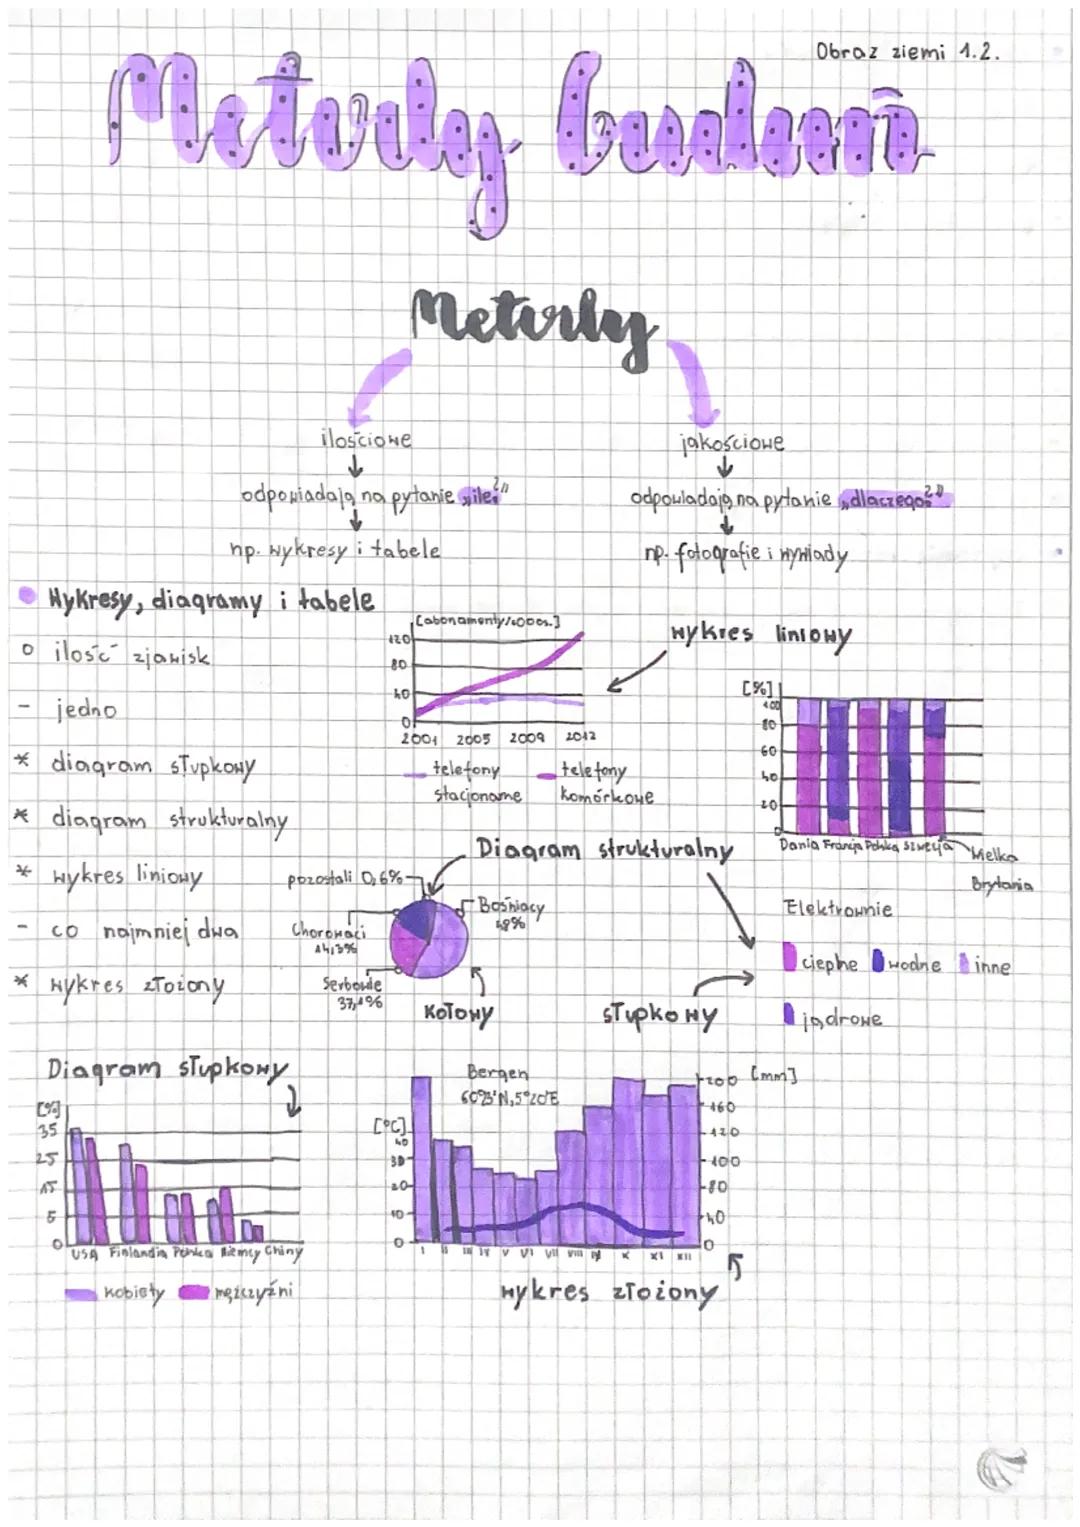 Obraz ziemi 1.2.
Metody badań
Metody
ilościowe
jakościowe
odpowiadają na pytanie „ile?"
odpowiadają na pytanie „dlaczego?"
np. wykresy i tabele
np. fotografie i wywiady
Wykresy, diagramy i tabele
o ilość zjawisk
- jedno
* diagram słupkowy
* diagram strukturalny
* wykres liniowy
- co najmniej dwa
* wykres złożony
[abonamenty/1000os.]
120
80
40
0
2001 2005 2009 2012
telefony stacjonarne
telefony komórkowe
wykres liniowy
[%]
100
80
60
40
20
0
Dania Francja Polska Szwecja Wielka
Brytania
Elektrownie
cieplne wodne inne
jądrowe
Diagram strukturalny
pozostali 0,6%
Bośniacy
48%
Chorowaci
14,3%
Serbowie
37,1%
kołowy
słupkowy
Diagram słupkowy
[%]
35
25
15
5
0
USA Finlandia Polska Niemcy Chiny
kobiety mężczyźni
Bergen
60°23'N, 5°20'E
[°C]
40
30
20
10
0
I II III IV V VI VII VIII IX X XI XII
200 [mm]
160
120
100
80
40
0
wykres złożony